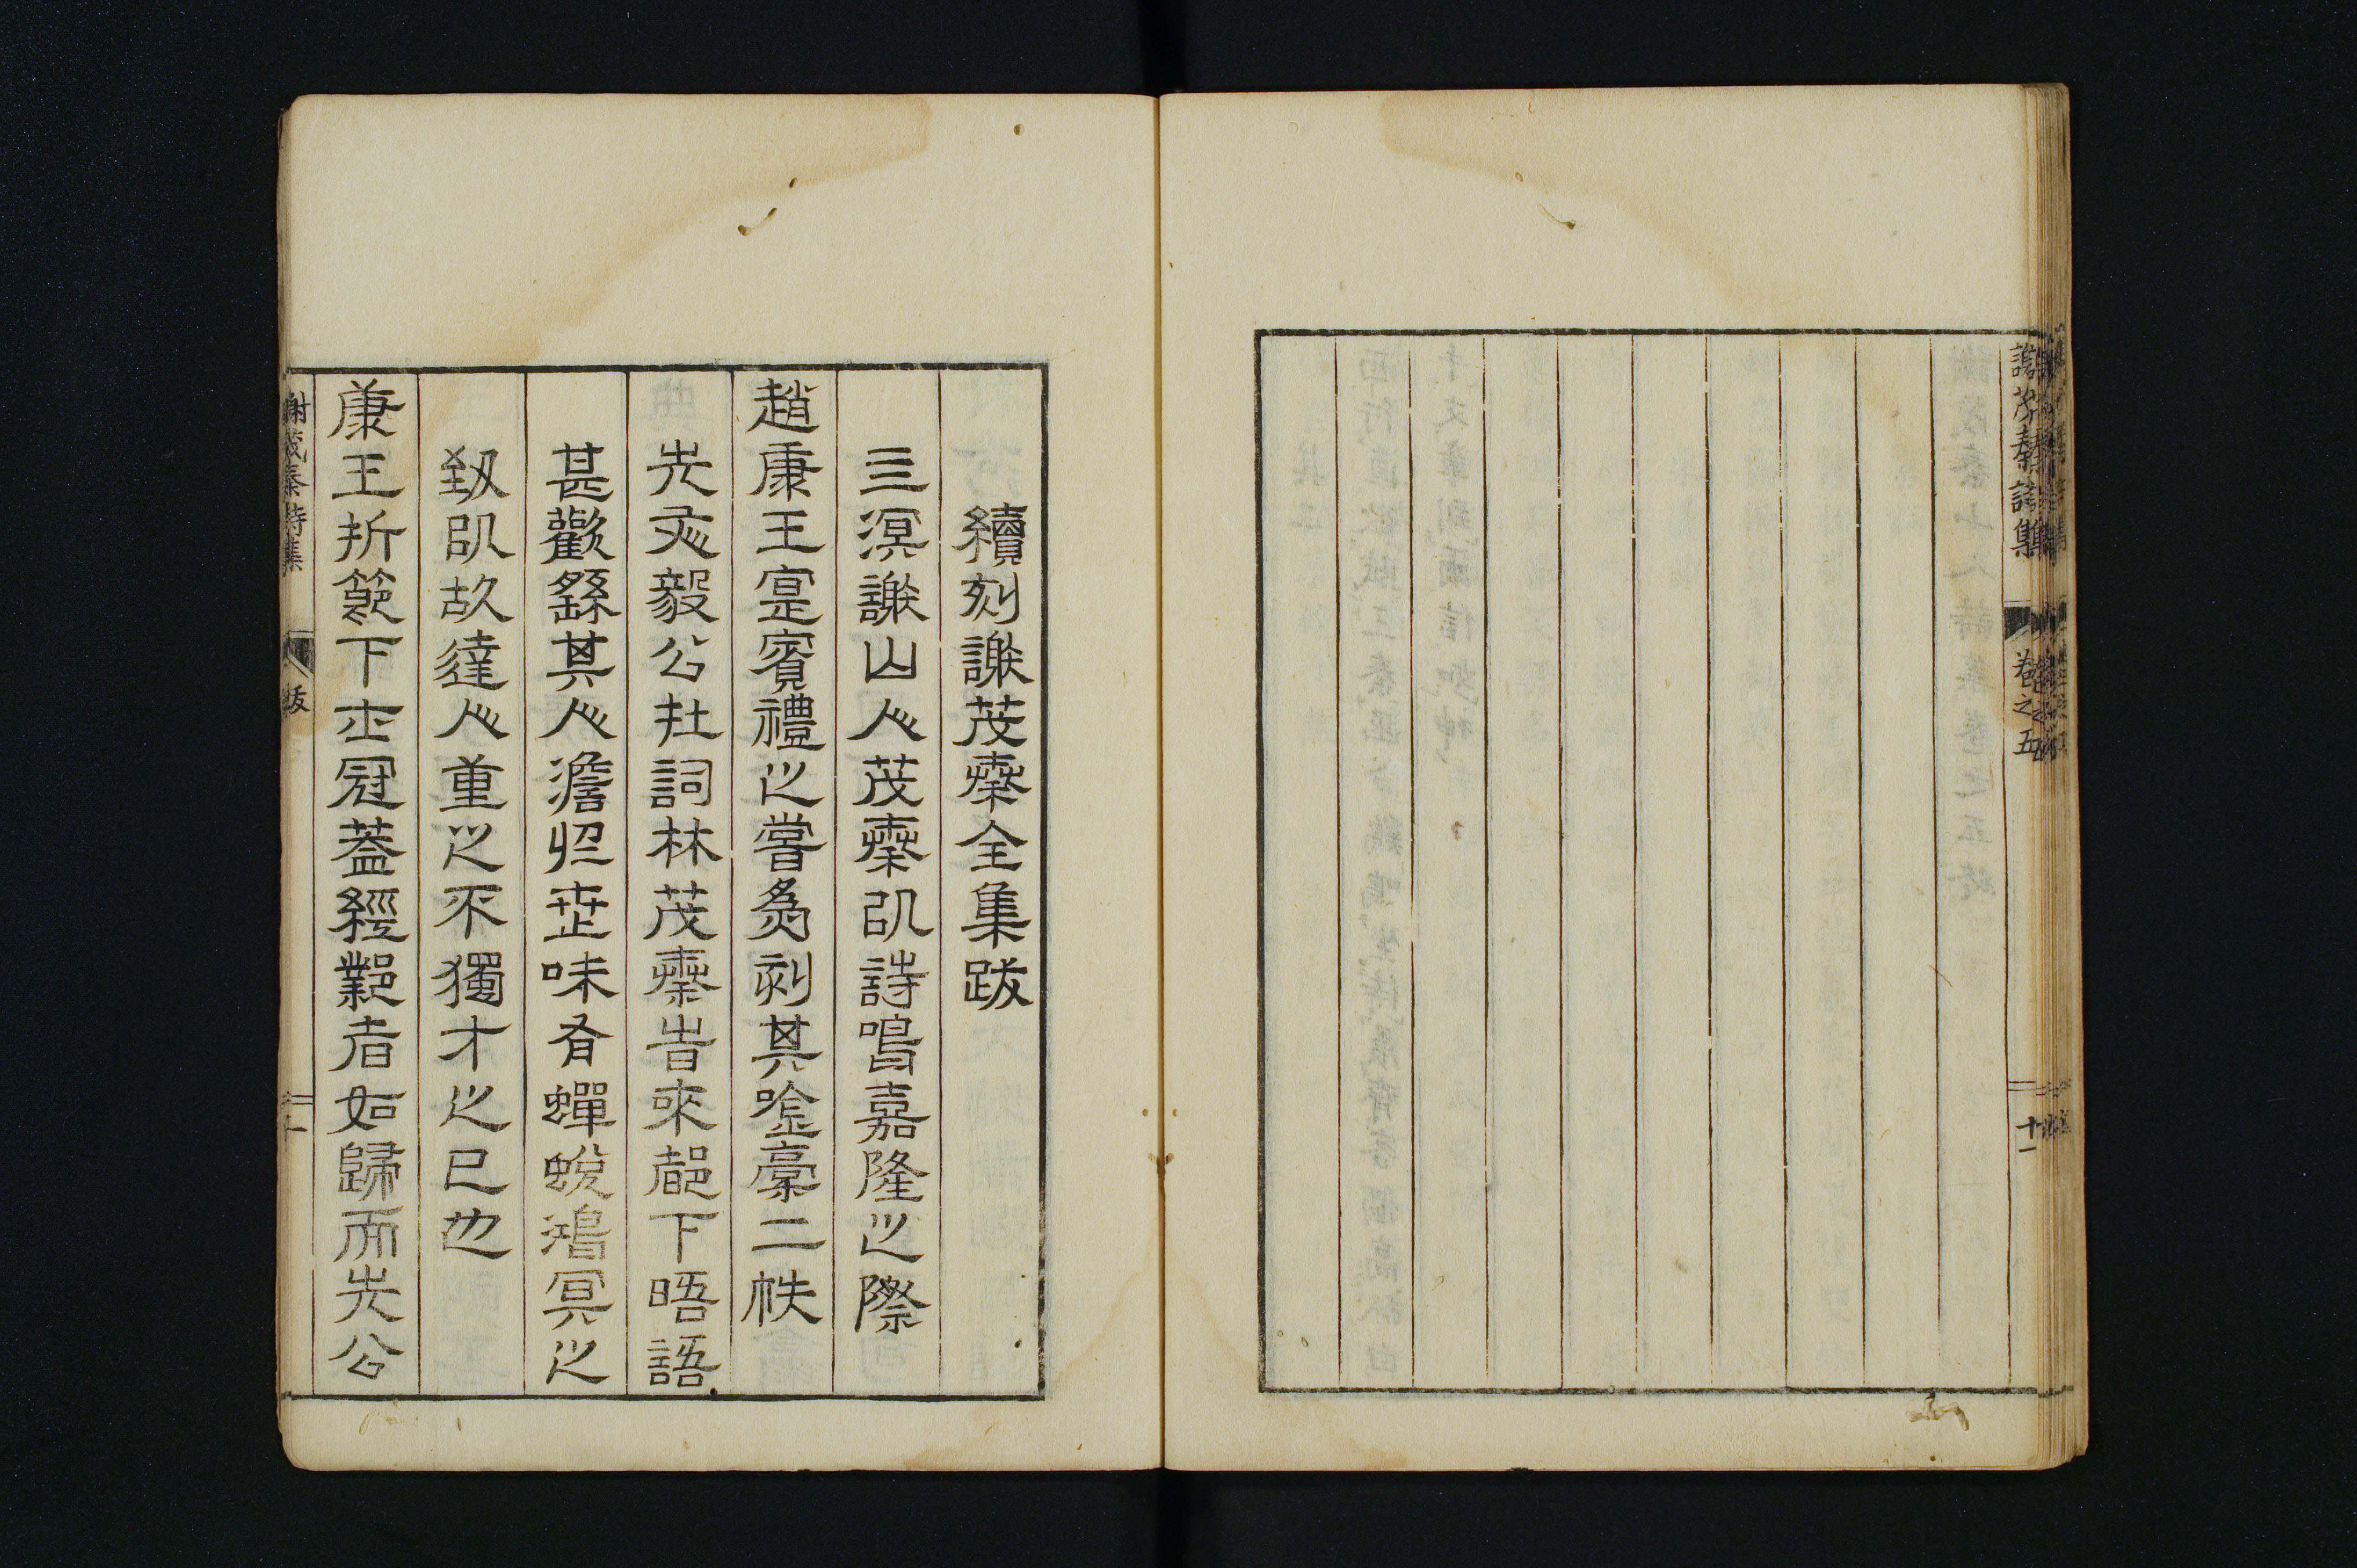 謝茂秦詩集 卷之五 十一
續刻謝茂秦全集跋
三溟謝山人茂秦以詩鳴嘉隆之際
趙康王寔賓禮之嘗爲刻其唫稾二帙
先文毅公在詞林茂秦昔來都下晤語
甚歡繇其人澹忍世味有蟬蛻鴻冥之
致以故達人重之不獨才之已也
康王折節下士冠蓋經鄴者如歸而先公
謝茂秦詩集 跋 一